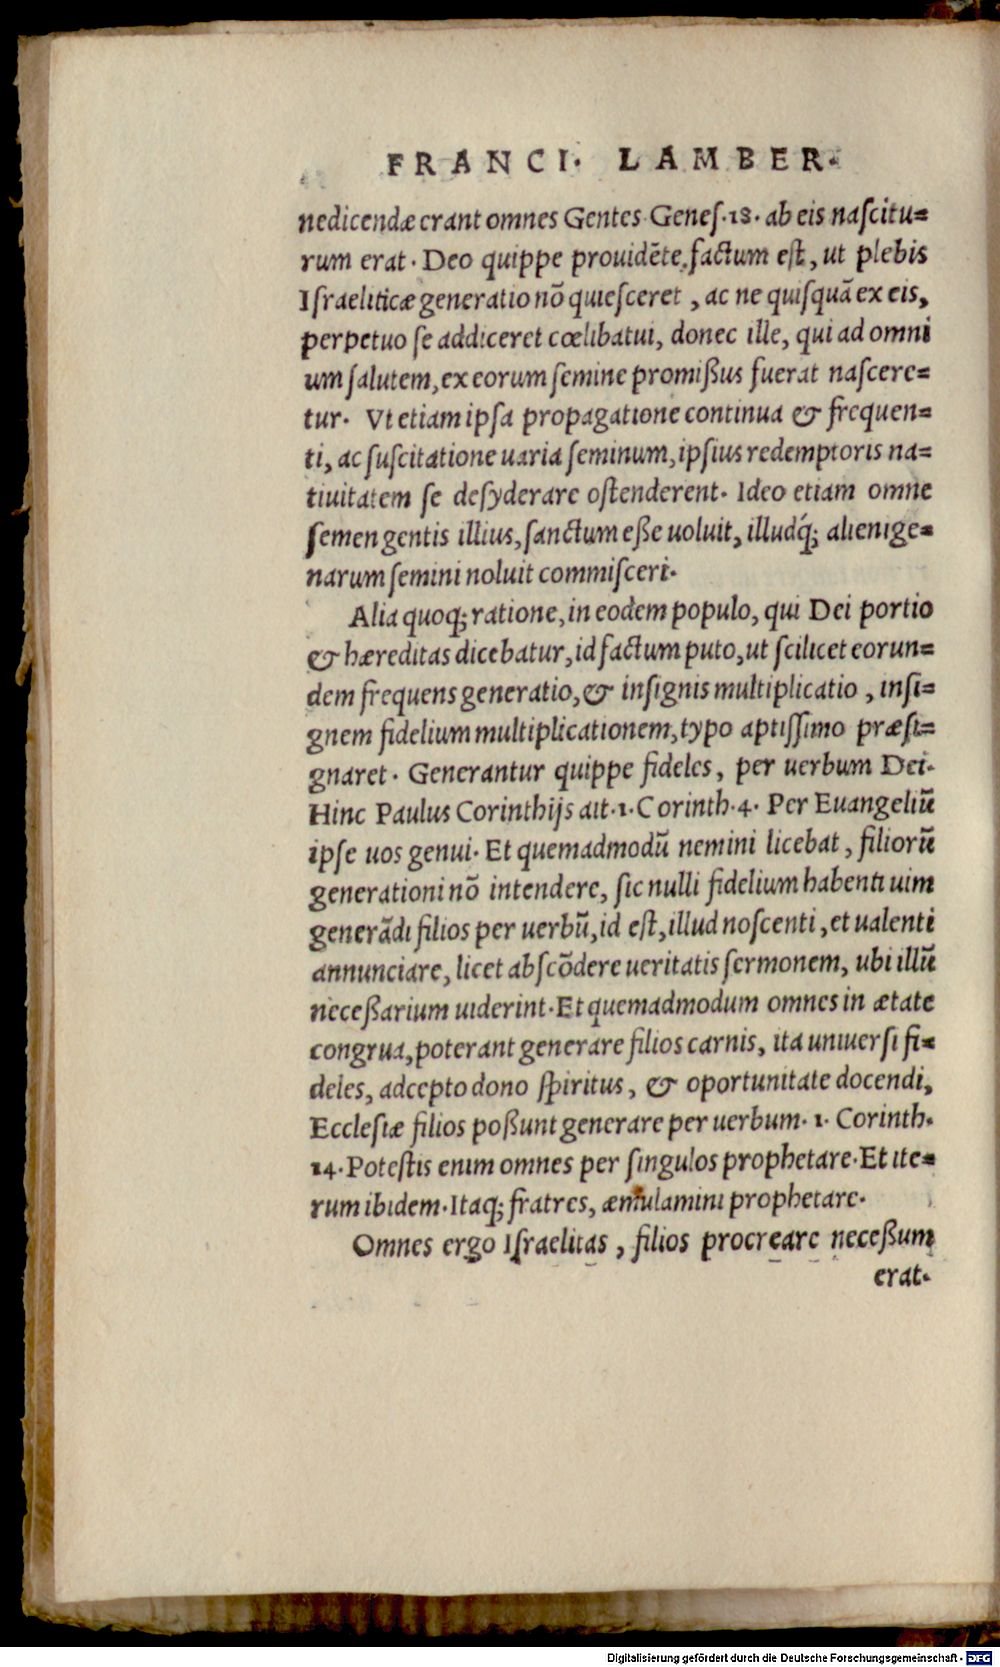 FRANCI. LAMBER.
nedicendæ erant omnes Gentes Genes.18. ab eis nascitu=
rum erat. Deo quippe prouidēte, factum est, ut plebis
Israeliticæ generatio nō quiesceret, ac ne quisquā ex eis,
perpetuo se addiceret cœlibatui, donec ille, qui ad omni
um salutem, ex eorum semine promißus fuerat nascere=
tur. Vt etiam ipsa propagatione continua & frequen=
ti, ac suscitatione uaria seminum, ipsius redemptoris na=
tiuitatem se desyderare ostenderent. Ideo etiam omne
semen gentis illius, sanctum eße uoluit, illudq́; alienige=
narum semini noluit commisceri.
Alia quoq; ratione, in eodem populo, qui Dei portio
& hæreditas dicebatur, id factum puto, ut scilicet eorun=
dem frequens generatio, & insignis multiplicatio, insi=
gnem fidelium multiplicationem, typo aptissimo præsi=
gnaret. Generantur quippe fideles, per uerbum Dei.
Hinc Paulus Corinthijs ait.1.Corinth.4. Per Euangeliū
ipse uos genui. Et quemadmodū nemini licebat, filiorū
generationi nō intendere, sic nulli fidelium habenti uim
generādi filios per uerbū, id est, illud noscenti, et ualenti
annunciare, licet abscōdere ueritatis sermonem, ubi illū
neceßarium uiderint. Et quemadmodum omnes in ætate
congrua, poterant generare filios carnis, ita uniuersi fi=
deles, adcepto dono spiritus, & oportunitate docendi,
Ecclesiæ filios poßunt generare per uerbum. 1. Corinth.
14. Potestis enim omnes per singulos prophetare. Et ite=
rum ibidem. Itaq; fratres, æmulamini prophetare.
Omnes ergo Israelitas, filios procreare neceßum
erat.
Digitalisierung gefördert durch die Deutsche Forschungsgemeinschaft - DFG